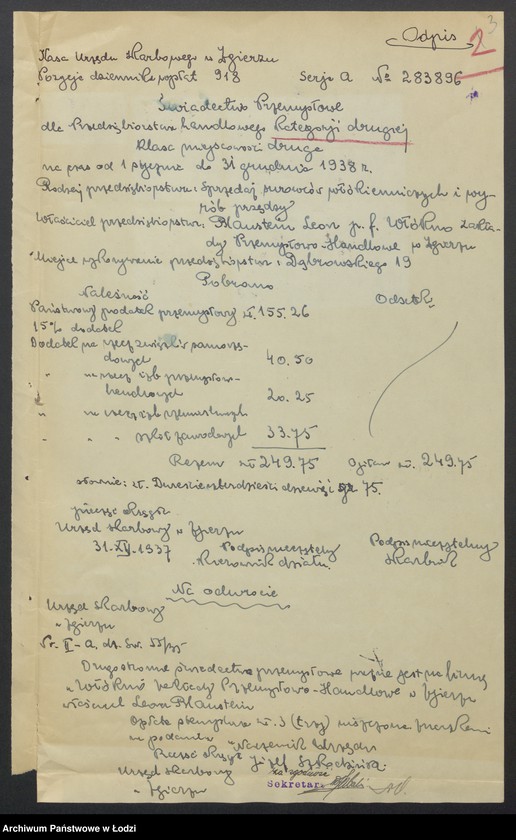 Odpis
3
2
Kasa Urzędu Skarbowego w Zgierzu
Pozycja dziennika wpłat 918 Serja A № 283896
Świadectwo Przemysłowe
dla Przedsiębiorstwa handlowego Kategorji drugiej
Klasa miejscowości druga
na czas od 1 stycznia do 31 grudnia 1938 r.
Rodzaj przedsiębiorstwa: Sprzedaż surowców włókienniczych i wy-
rób przędzy
Właściciel przedsiębiorstwa: Plaustein Leon p. f. Włókno Zakła-
dy Przemysłowo-Handlowe w Zgierzu
Miejsce wykonywania przedsiębiorstwa: Dąbrowskiego 19
Pobrano
Należność Odsetki
Państwowy podatek przemysłowy zł. 155.26
15% dodatek
Dodatek na rzecz związków samorzą-
dowych 40.50
" na rzecz izb przemysłowo-
handlowych 20.25
" na rzecz izb rzemieślniczych
" " " szkół zawodowych 33.75
Razem zł 249.75 Ogółem zł. 249.75
słownie: zł. Dwieście czterdzieści dziewięć gr 75.
pieczęć okrągła
Urząd Skarbowy w Zgierzu
31.XII.1937 Podpis nieczytelny Podpis nieczytelny
Kierownik działu. Skarbnik
Na odwrocie
Urząd Skarbowy
w Zgierzu
Nr. II-a,
Drugostronne świadectwo przemysłowe ważne jest na firmę
"Włókno" Zakłady Przemysłowo-Handlowe w Zgierzu
właściciel Leon Plaustein
Opłata stemplowa zł. 3 (trzy) uiszczona znaczkami
na podaniu Naczelnik Urzędu
Pieczęć okrągła Józef
Urząd Skarbowy za zgodność
w Zgierzu Sekretarz
Archiwum Państwowe w Łodzi
Archiwum Państwowe w Łodzi